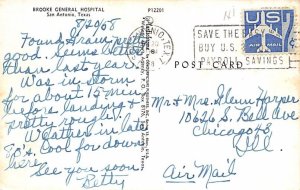 BROOKE GENERAL HOSPITAL
San Antonio, Texas
P12201
Found Brain pretty
good. Seems better
than last year.
Was in storm
for about 15 min
before landing &
pretty rough.
Weather in late
70's. Cool for down
here.
See you soon
Betty
SAVE THE
BUY U.S.
PAYROLL SAVINGS
US
AIR MAIL
POST CARD
Mr & Mrs. Glenn Harper
10626 S. Bell Ave
Chicago 43
Ill.
Air Mail